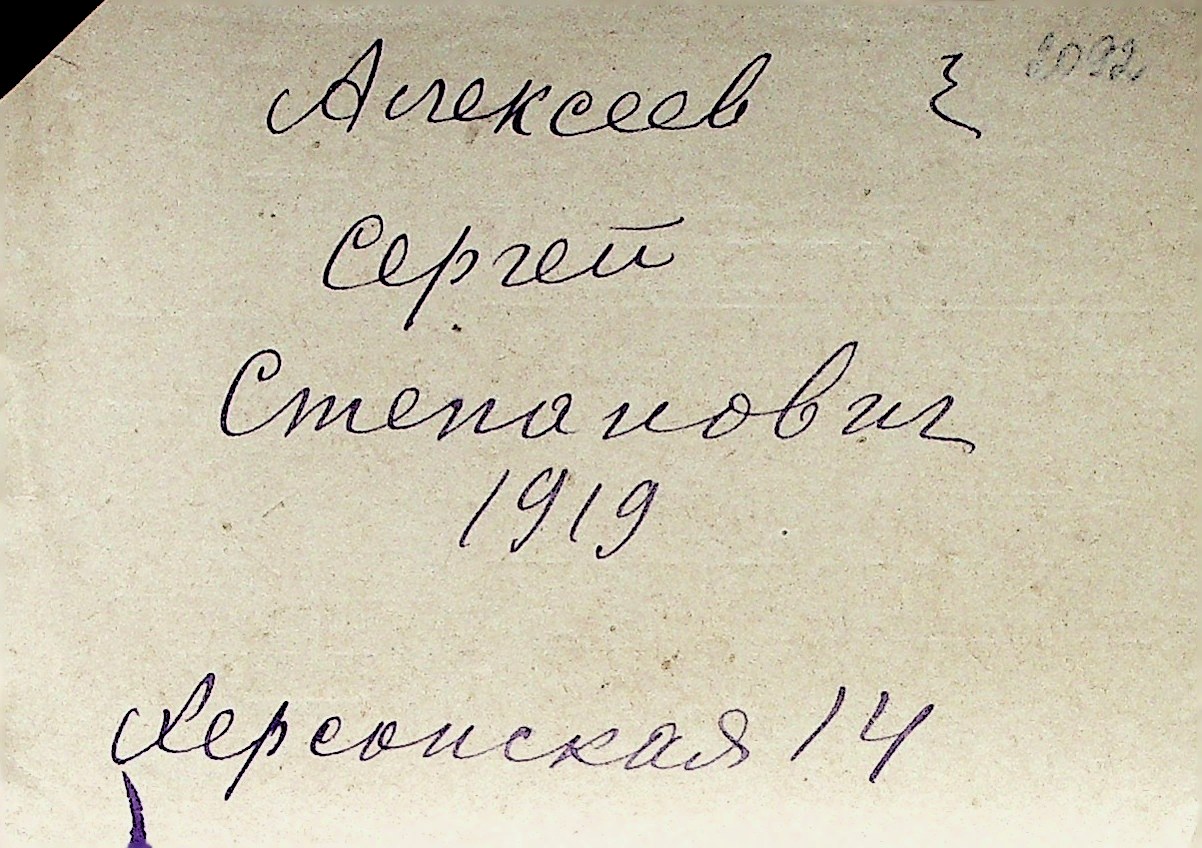 Алексеев 2092
Сергей
Степанович
1919
Херсонская 14